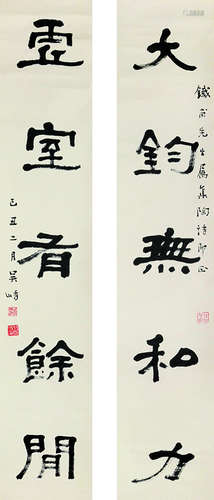 大鈞無私力
先生屬集陶詩即正
虛室有餘閒
己丑二月吳